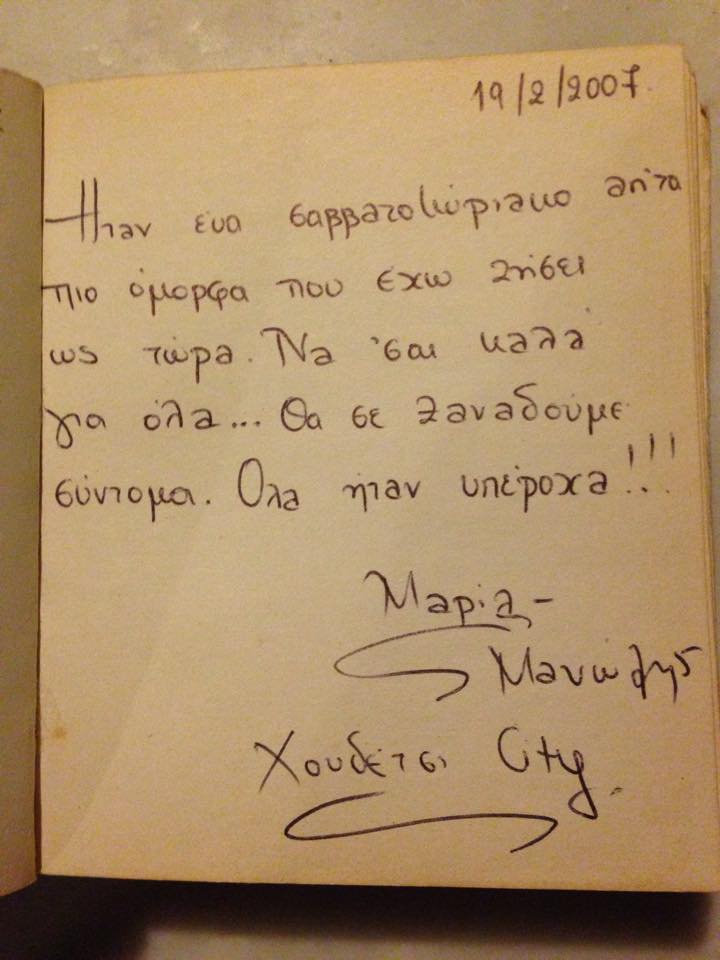 19/2/2007.
Ήταν ένα σαββατοκύριακο απ'τα
πιο όμορφα που έχω ζήσει
ως τώρα. Να 'σαι καλά
για όλα... Θα σε ξαναδούμε
σύντομα. Όλα ήταν υπέροχα!!!
Μαρία-
Μανώλης
Χουδέτσι City.